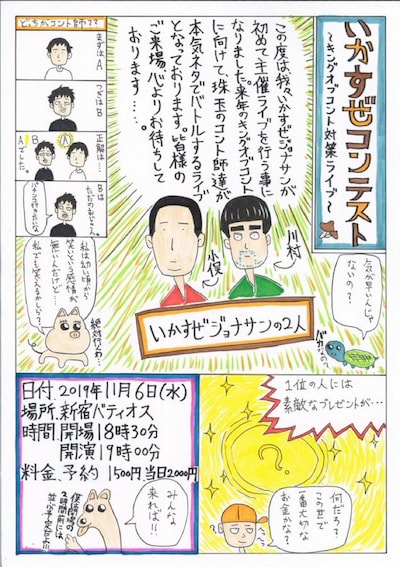 いかすぜコンテスト
〜キングオブコント対策ライブ〜
この度は我々、いかすぜジョナサンが
初めて主催ライブを行う事に
なりました。来年のキングオブコント
に向けて珠玉のコント師達が
本気ネタでバトルするライブ
となっております。皆様の
ご来場心よりお待ちして
おります……。
川村
小俣
いかすぜジョナサンの2人
気が早いんじゃ
ないの?
バカなの?
どっちがコント師??
まずはA
つぎはB
正解は…
B
A
Aでした。
Bは
ただのおじさん。
パチンコ行きたいな
私は幼い頃から
笑いという感情が
無いんだけど…
私でも笑えるかしら?
絶対行くわ!
1位の人には
素敵なプレゼントが…
?
何だろ?
この世で
一番大切な
お金かな?
日付.2019年11月6日(水)
場所.新宿バティオス
時間.開場18時30分
開演19時00分
料金、予約1500円当日2000円
みんな
来れば!!
僕は開場の
2時間前には
並ぶ予定だよ!!